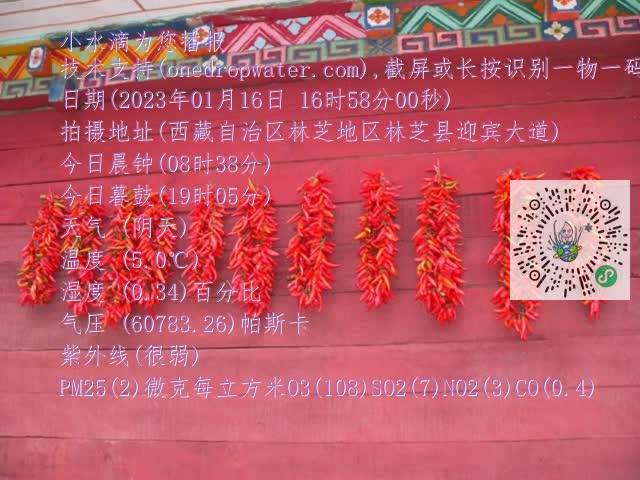 小水滴为您播报
技术支持(onedropwater.com),截屏或长按识别一物一码
日期(2023年01月16日 16时58分00秒)
拍摄地址(西藏自治区林芝地区林芝县迎宾大道)
今日晨钟(08时38分)
今日暮鼓(19时05分)
天气 (阴天)
温度 (5.0℃)
湿度 (0.34)百分比
气压 (60783.26)帕斯卡
紫外线(很弱)
PM25(2)微克每立方米O3(108)SO2(7)NO2(3)CO(0.4)